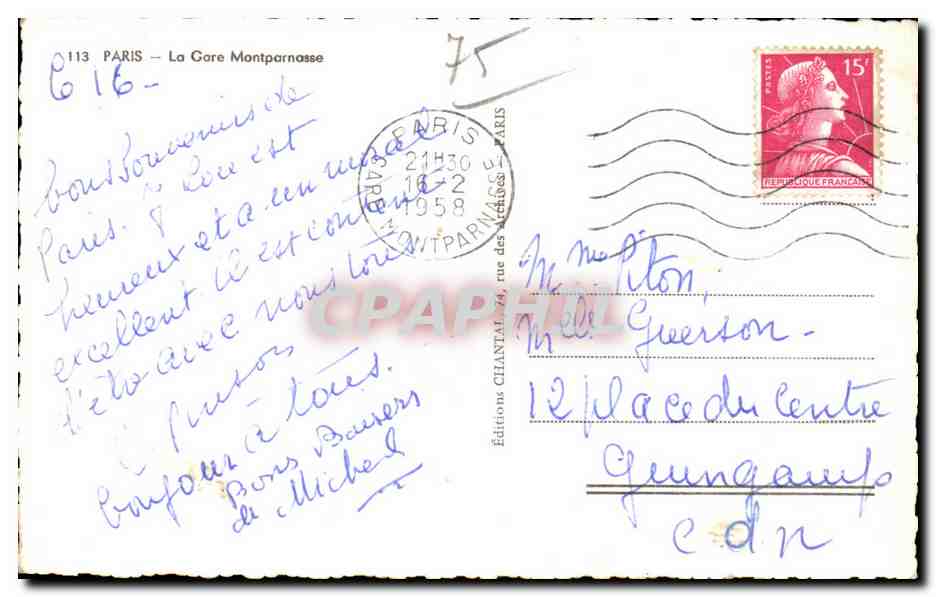 113 PARIS — La Gare Montparnasse
C 16 -
75
bons souvenirs de
Paris. est
heureux et a un moral
excellent il est content
d'être avec nous tous
bonjour à tous.
Bons Baisers
de Michel
PARIS
GARE MONTPARNASSE
21H30
16-2
1958
POSTES
15F
REPUBLIQUE FRANÇAISE
Éditions CHANTAL, 74, rue des Archives - PARIS
CPAPHIL
M. Mme Piton,
Melle Guerson -
12 place du Centre
Guingamp
C d n